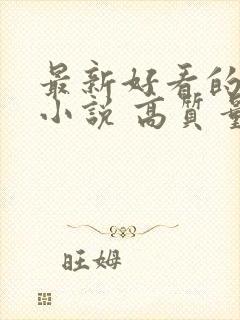 最新好看的
小说 高质量
旺姆